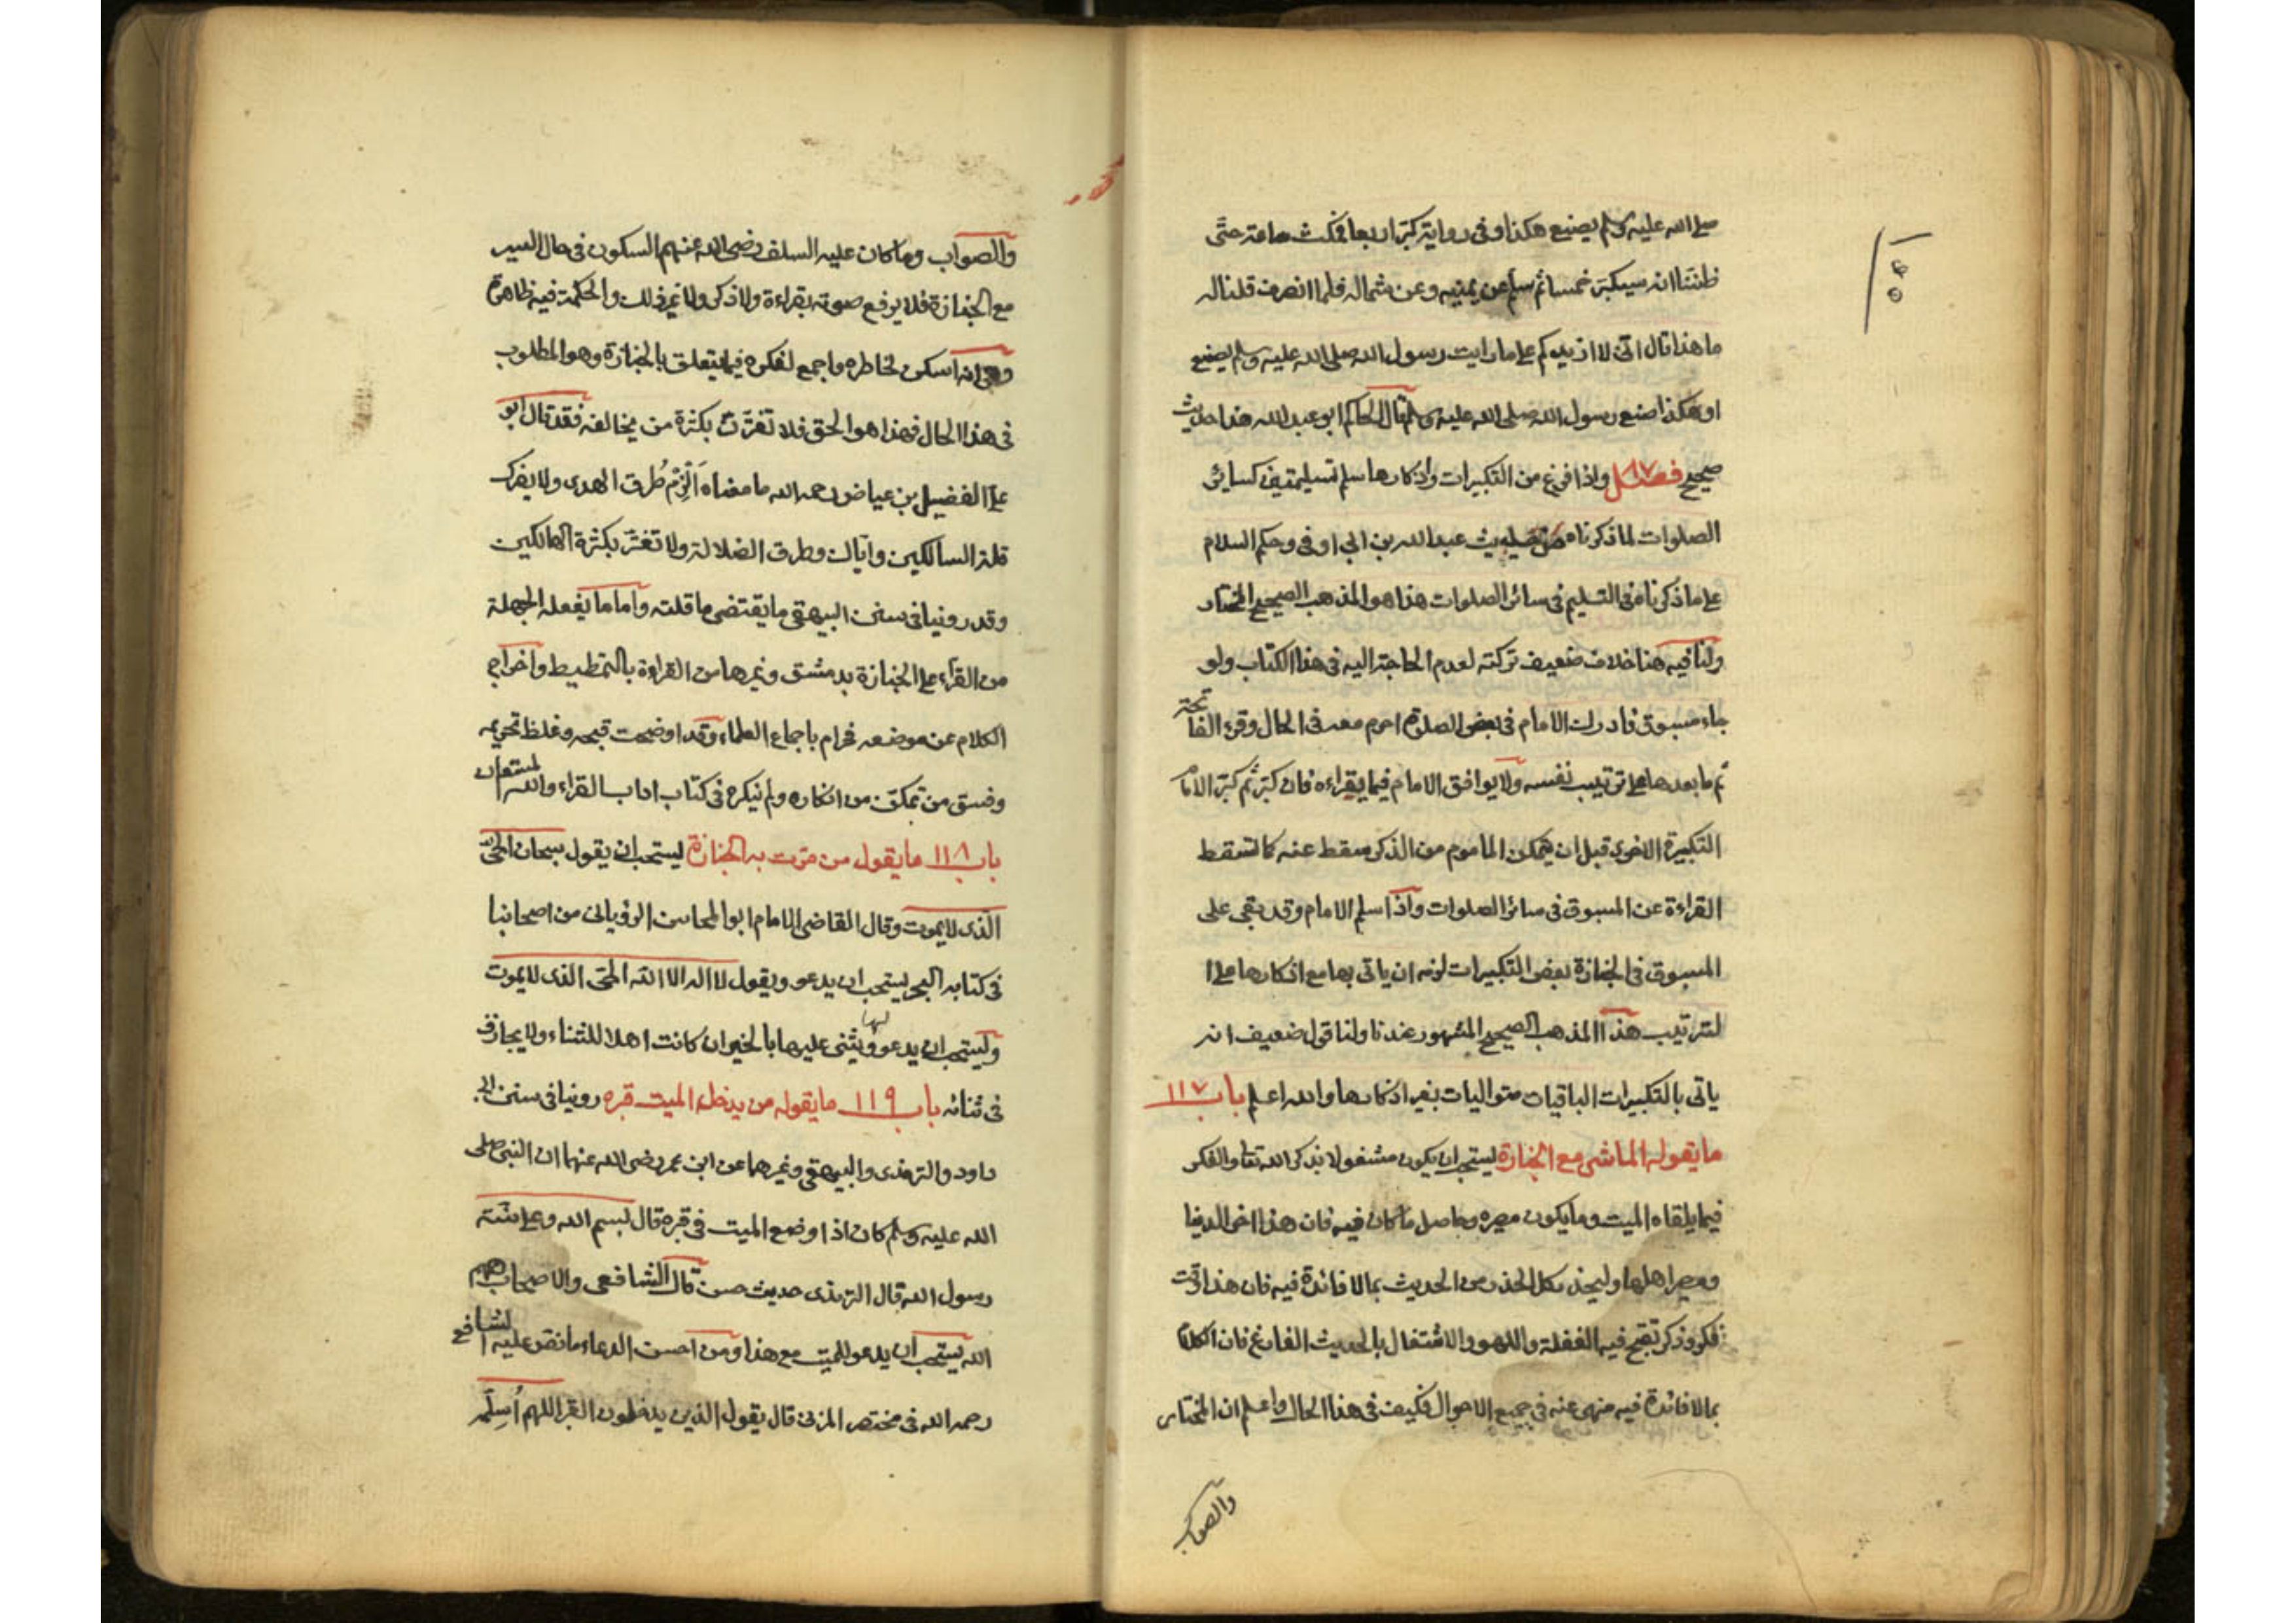 صلى الله عليه وسلم يصنع هكذا وفى رواية كبر اربعا فمكث ساعة حتى
ظننا انه سيكبر خمسا ثم سلم عن يمينه وعن شماله فلما انصرف قلنا له
ما هذا قال انى لا ازيدكم على ما رايت رسول الله صلى الله عليه وسلم يصنع
او هكذا صنع رسول الله صلى الله عليه وسلم قال الحاكم ابو عبد الله هذا حديث
صحيح فصل واذا فرغ من التكبيرات واذكارها سلم تسليمتين كسائر
الصلوات لما ذكرناه من حديث عبد الله بن ابى اوفى وحكم السلام
على ما ذكرنا فى التسليم فى سائر الصلوات هذا هو المذهب الصحيح المختار
ولنا فيه هنا خلاف ضعيف تركته لعدم الحاجة اليه فى هذا الكتاب ولو
جاء مسبوق فادرك الامام فى بعض الصلوة احرم معه فى الحال وقرء الفاتحة
ثم ما بعدها على ترتيب نفسه ولا يوافق الامام فيما يقراءه فان كبر ثم كبر الامام
التكبيرة الاخرى قبل ان يتمكن الماموم من الذكر سقط عنه كما تسقط
القراءة عن المسبوق فى سائر الصلوات واذا سلم الامام وقد بقى على
المسبوق فى الجنازة بعض التكبيرات لزمه ان ياتى بها مع اذكارها على ا
لترتيب هذا المذهب الصحيح المشهور عندنا ولنا قول ضعيف انه
ياتى بالتكبيرات الباقيات متواليات بغير اذكارها والله اعلم باب ١١٧
ما يقوله الماشى مع الجنازة يستحب ان يكون مشغولا بذكر الله تعا والفكر
فيما يلقاه الميت وما يكون مصيره وحاصل ما كان فيه فان هذا اخر الدنيا
ومصير اهلها وليحذر كل الحذر من الحديث بما لا فائدة فيه فان هذا وقت
فكر وذكر تقبح فيه الغفلة واللهو والاشتغال بالحديث الفارغ فان الكلام
بما لا فائدة فيه منهى عنه فى جميع الاحوال فكيف فى هذا الحال واعلم ان المختار
والصواب
والصواب وما كان عليه السلف رضى الله عنهم السكون فى حال السير
مع الجنازة فلا يرفع صوته بقراءة ولا ذكر ولا غير ذلك والحكمة فيه ظاهرة
وهى انه اسكن لخاطره واجمع لفكره فيما يتعلق بالجنازة وهو المطلوب
فى هذا الحال فهذا هو الحق فلا تغترن بكثرة من يخالفه فقد قال ابو
على الفضيل بن عياض رحمه الله ما معناه الزم طرق الهدى ولا يضرك
قلة السالكين واياك وطرق الضلالة ولا تغتر بكثرة الهالكين
وقد روينا فى سنن البيهقى ما يقتضى ما قلته واما ما يفعله الجهلة
من القراء على الجنازة بدمشق وغيرها من القراءة بالتمطيط واخراج
الكلام عن موضعه فحرام باجماع العلماء وقد اوضحت قبحه وغلظ تحريمه
وفسق من تمكن من انكاره ولم ينكره فى كتاب اداب القراء والله المستعان
باب ١١٨ ما يقول من مرت به الجنازة يستحب ان يقول سبحان الحى
الذى لا يموت وقال القاضى الامام ابو المحاسن الرويانى من اصحابنا
فى كتابه البحر يستحب ان يدعو ويقول لا اله الا الله الحى الذى لا يموت
ويستحب ان يدعو لها ويثنى عليها بالخير ان كانت اهلا للثناء ولا يجازف
فى ثنائه باب ١١٩ ما يقوله من يدخل الميت قبره روينا فى سنن ابى
داود والترمذى والبيهقى وغيرهما عن ابن عمر رضى الله عنهما ان النبى صلى
الله عليه وسلم كان اذا وضع الميت فى قبره قال بسم الله وعلى سنة
رسول الله قال الترمذى حديث حسن قال الشافعى والاصحاب رحمهم
الله يستحب ان يدعو للميت مع هذا ومن احسن الدعاء ما نص عليه الشافعى
رحمه الله فى مختصر المزنى قال يقول الذين يدخلون القبر اللهم اسلمه